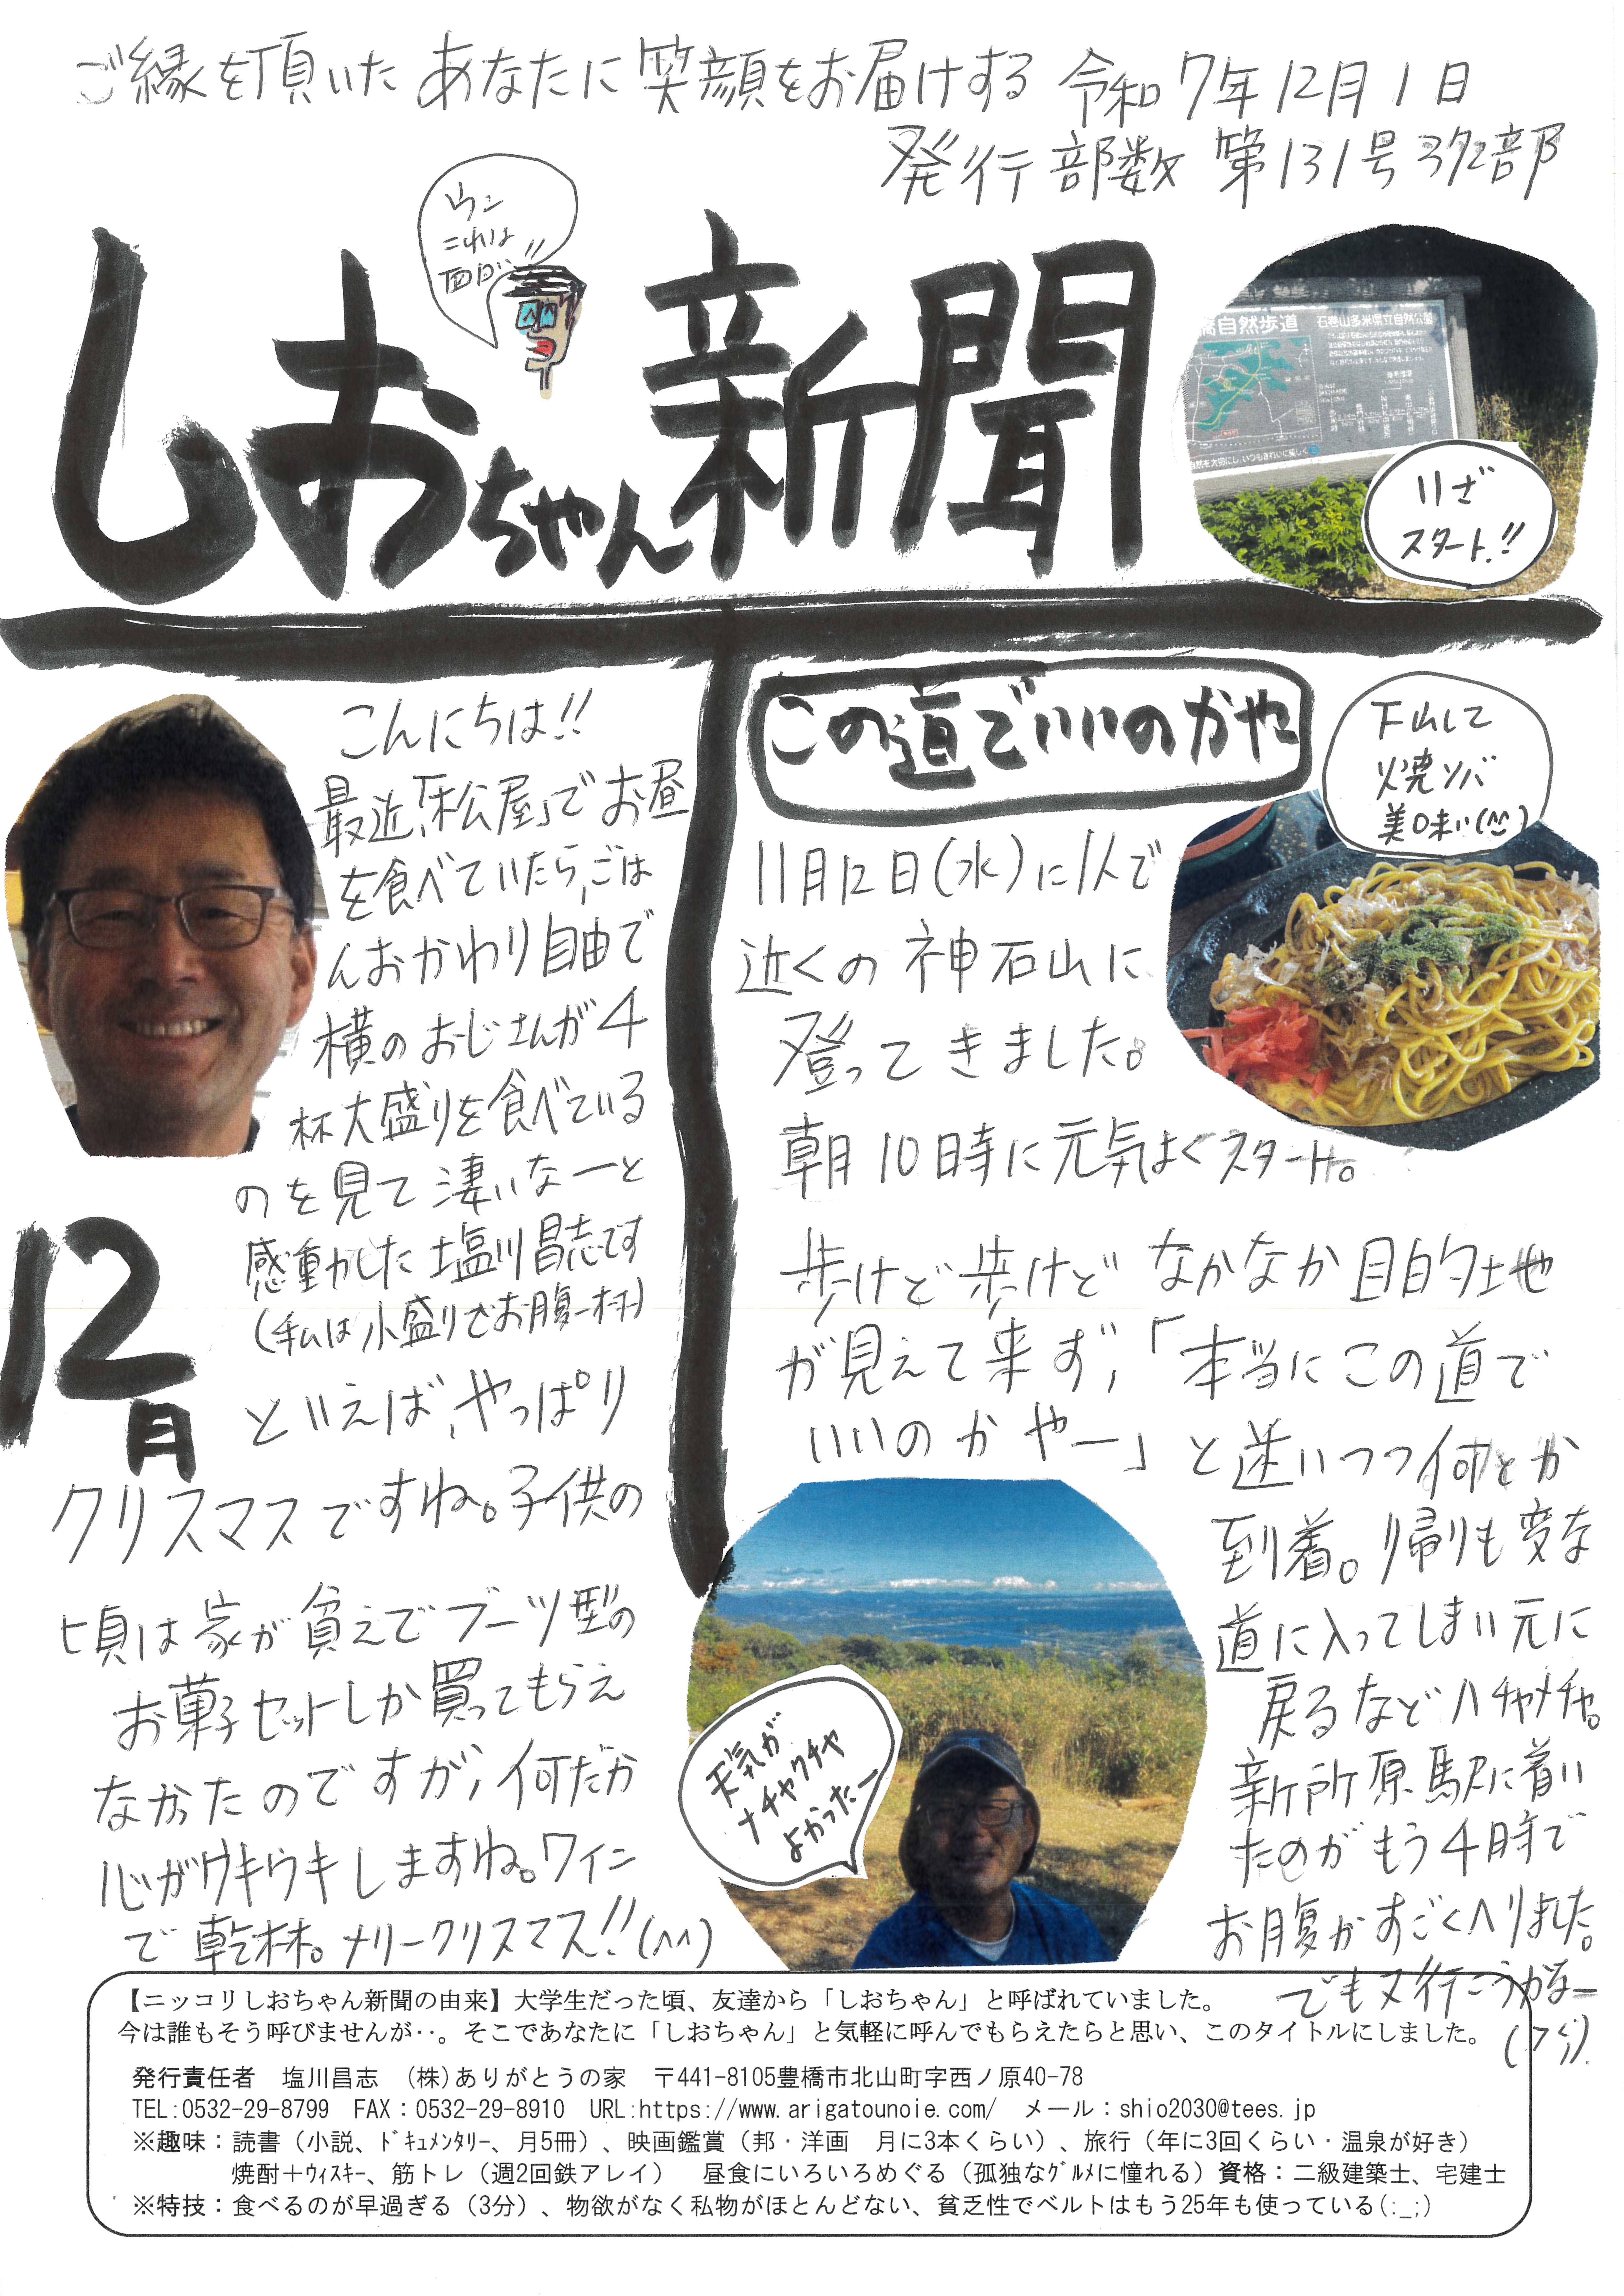 ご縁を頂いた あなたに 笑顔をお届けする 令和7年12月1日
発行部数 第131号372部
ウン
これは
面白い!!
しおちゃん新聞
自然歩道 石巻山多米県立自然公園
自然を大切にし、いつもきれいに美しく
いざ
スタート!!
こんにちは!!
最近、「松屋」でお昼
を食べていたら、ごは
んおかわり自由で
横のおじさんが4
杯大盛りを食べている
のを見て凄いなーと
感動した塩川昌志です
(私は小盛りでお腹一杯)
12月
といえば、やっぱり
クリスマスですね。子供の
頃は家が貧乏でブーツ型の
お菓子セットしか買ってもらえ
なかったのですが、何だか
心がウキウキしますね。ワイン
で乾杯。メリークリスマス!!(^^)
この道でいいのかや
下山して
焼ソバ
美味い(^^)
11月12日(水)に1人で
近くの神石山に
登ってきました。
朝10時に元気よくスタート。
歩けど歩けど なかなか目的地
が見えて来ず、「本当にこの道で
いいのかやー」と迷いつつ何とか
到着。帰りも変な
道に入ってしまい元に
戻るなどハチャメチャ。
新所原駅に着い
たのがもう4時で
お腹がすごくへりました。
でも又行こうかなー
天気が
メチャクチャ
よかったー
【ニッコリしおちゃん新聞の由来】大学生だった頃、友達から「しおちゃん」と呼ばれていました。
今は誰もそう呼びませんが‥。そこであなたに「しおちゃん」と気軽に呼んでもらえたらと思い、このタイトルにしました。
発行責任者 塩川昌志 (株)ありがとうの家 〒441-8105豊橋市北山町字西ノ原40-78
TEL:0532-29-8799 FAX：0532-29-8910 URL:https://www.arigatounoie.com/ メール：shio2030@tees.jp
※趣味：読書（小説、ﾄﾞｷｭﾒﾝﾀﾘｰ、月5冊）、映画鑑賞（邦・洋画 月に3本くらい）、旅行（年に3回くらい・温泉が好き）
焼酎＋ｳｨｽｷｰ、筋トレ（週2回鉄アレイ） 昼食にいろいろめぐる（孤独なｸﾞﾙﾒに憧れる）資格：二級建築士、宅建士
※特技：食べるのが早過ぎる（3分）、物欲がなく私物がほとんどない、貧乏性でベルトはもう25年も使っている(:_;)